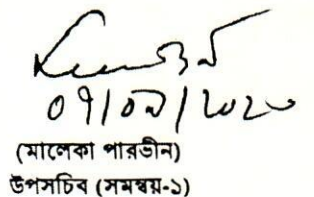 ০৭/০৯/২০২০
(মালেকা পারভীন)
উপসচিব (সমন্বয়-১)